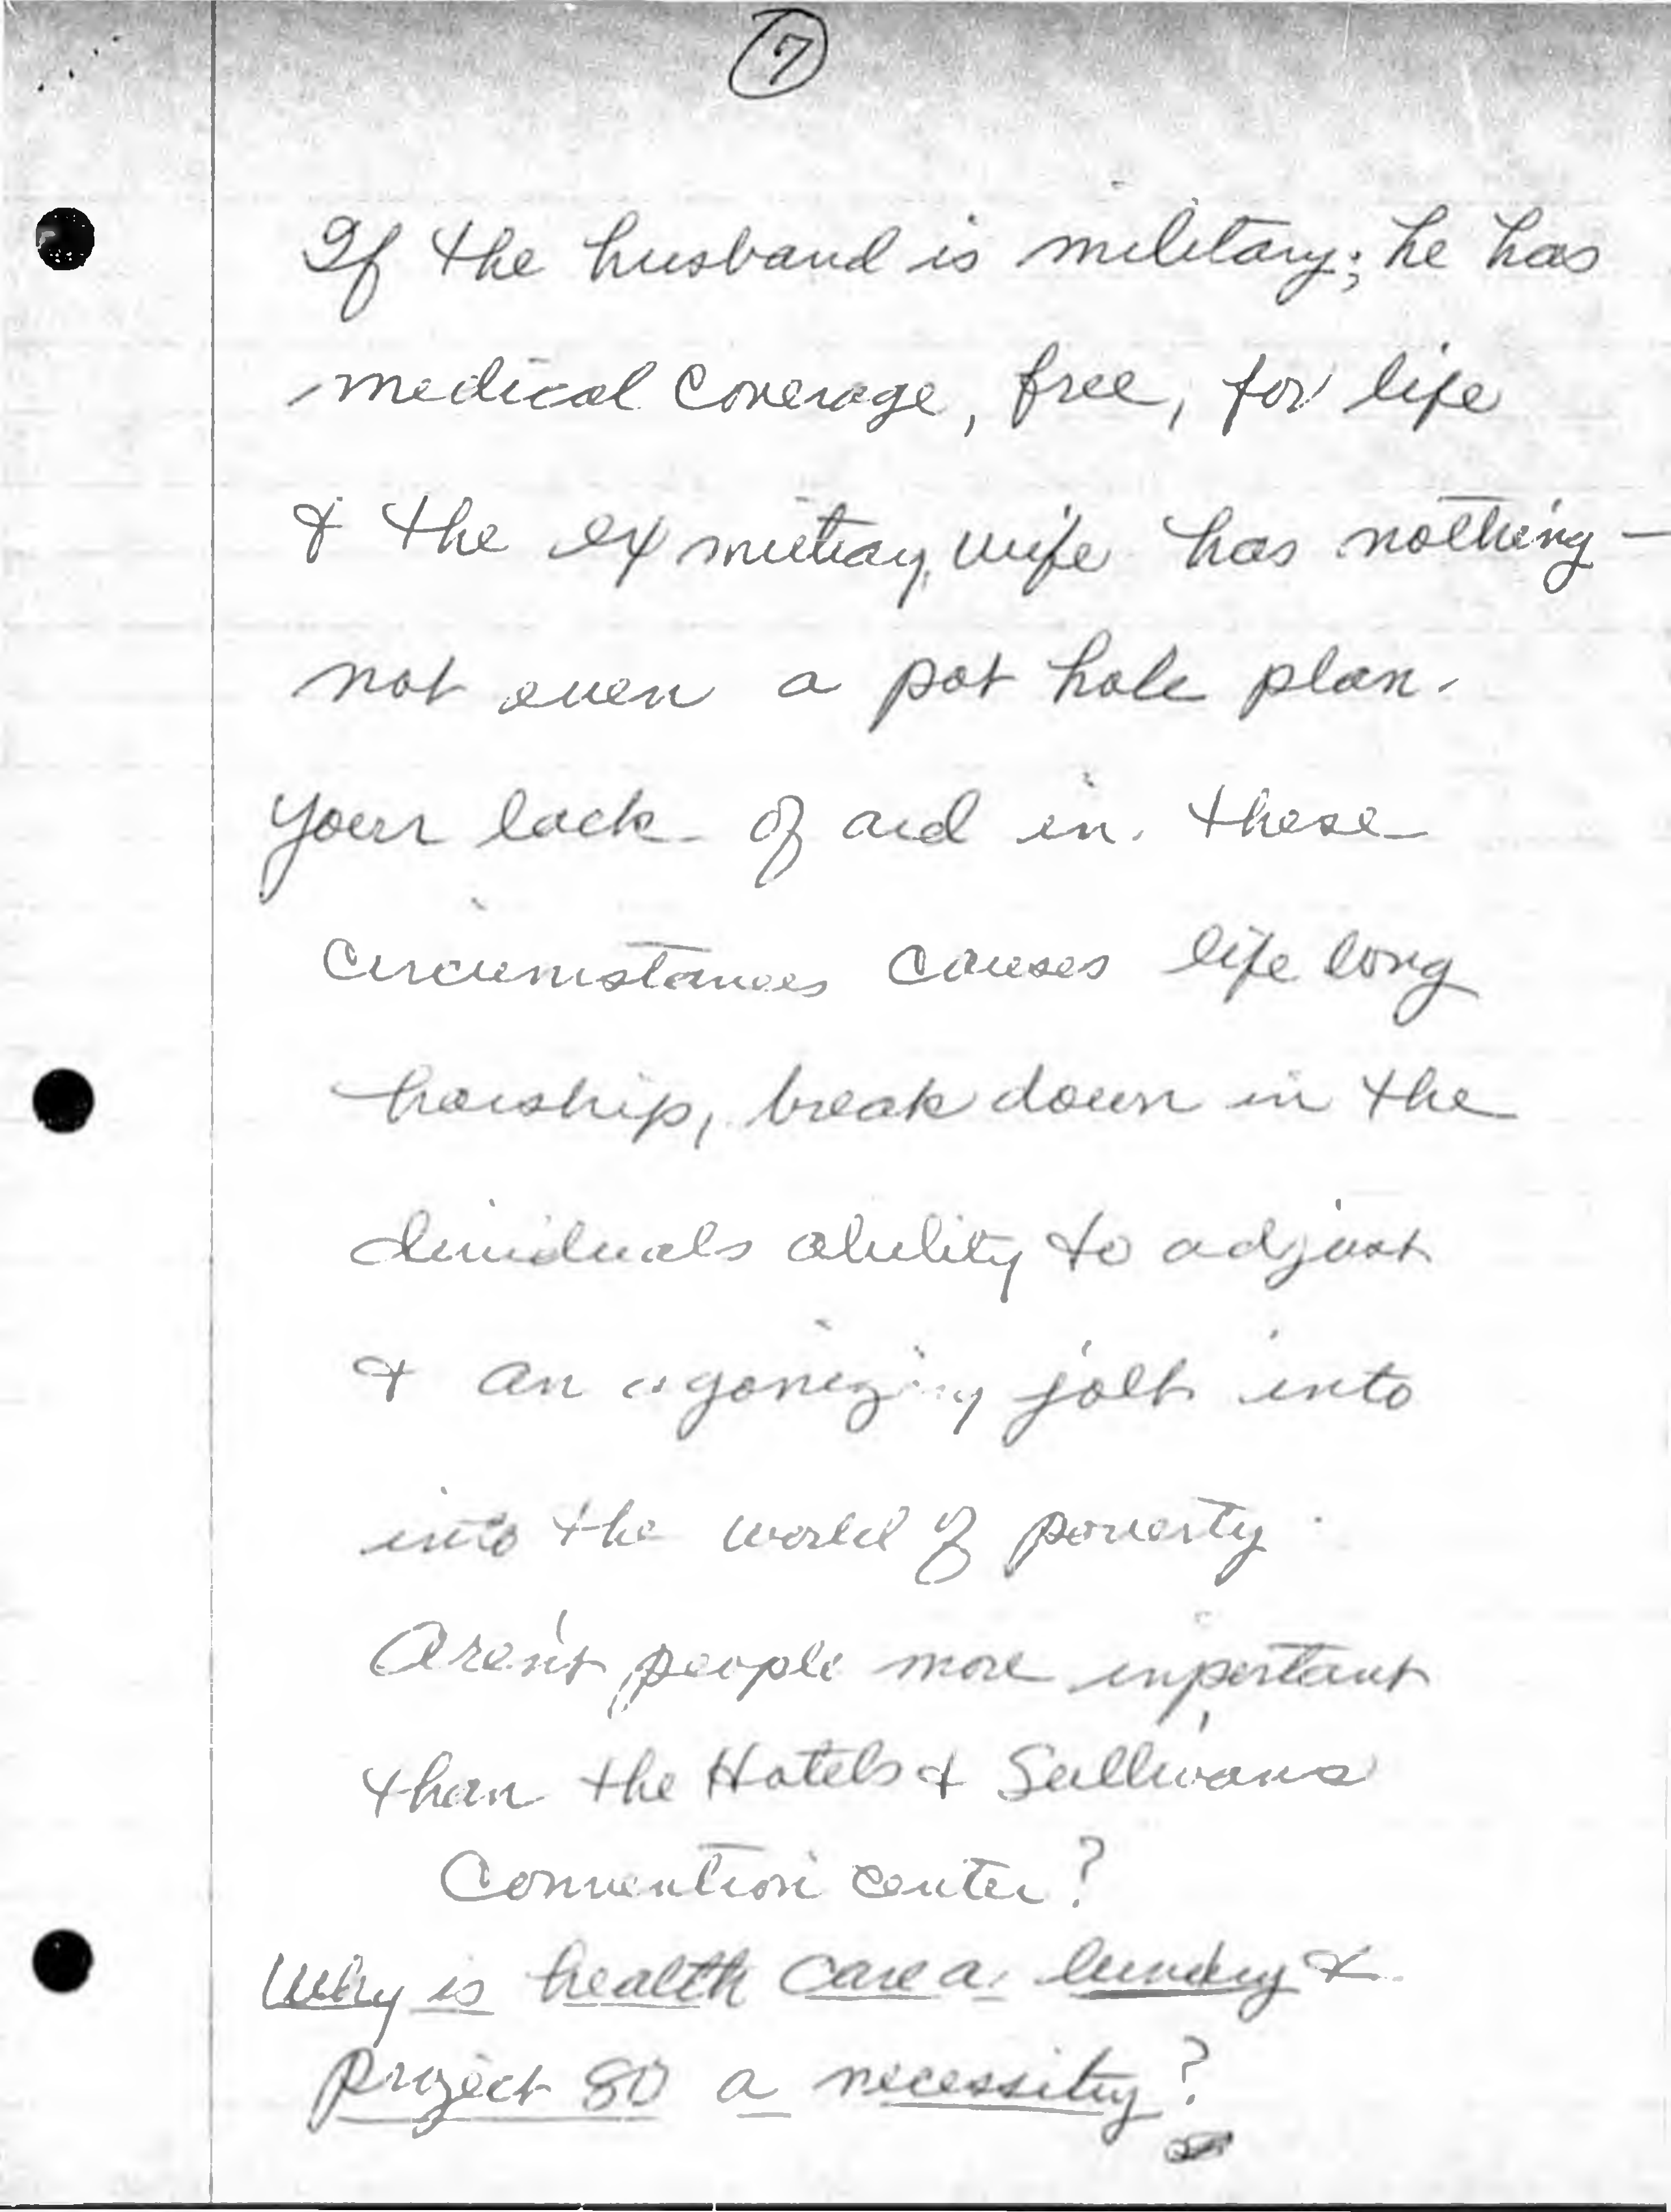 7
If the husband is military; he has
medical coverage, free, for life
& the ex military wife has nothing —
not even a pot hole plan.
Your lack of aid in these
circumstances causes life long
harship, break down in the
dividuals ability to adjust
& an agonizing jolt into
into the world of poverty.
Aren't people more inportant
than the Hotels & Sullivans
Convention center?
Why is health care a &
project 80 a necessity?